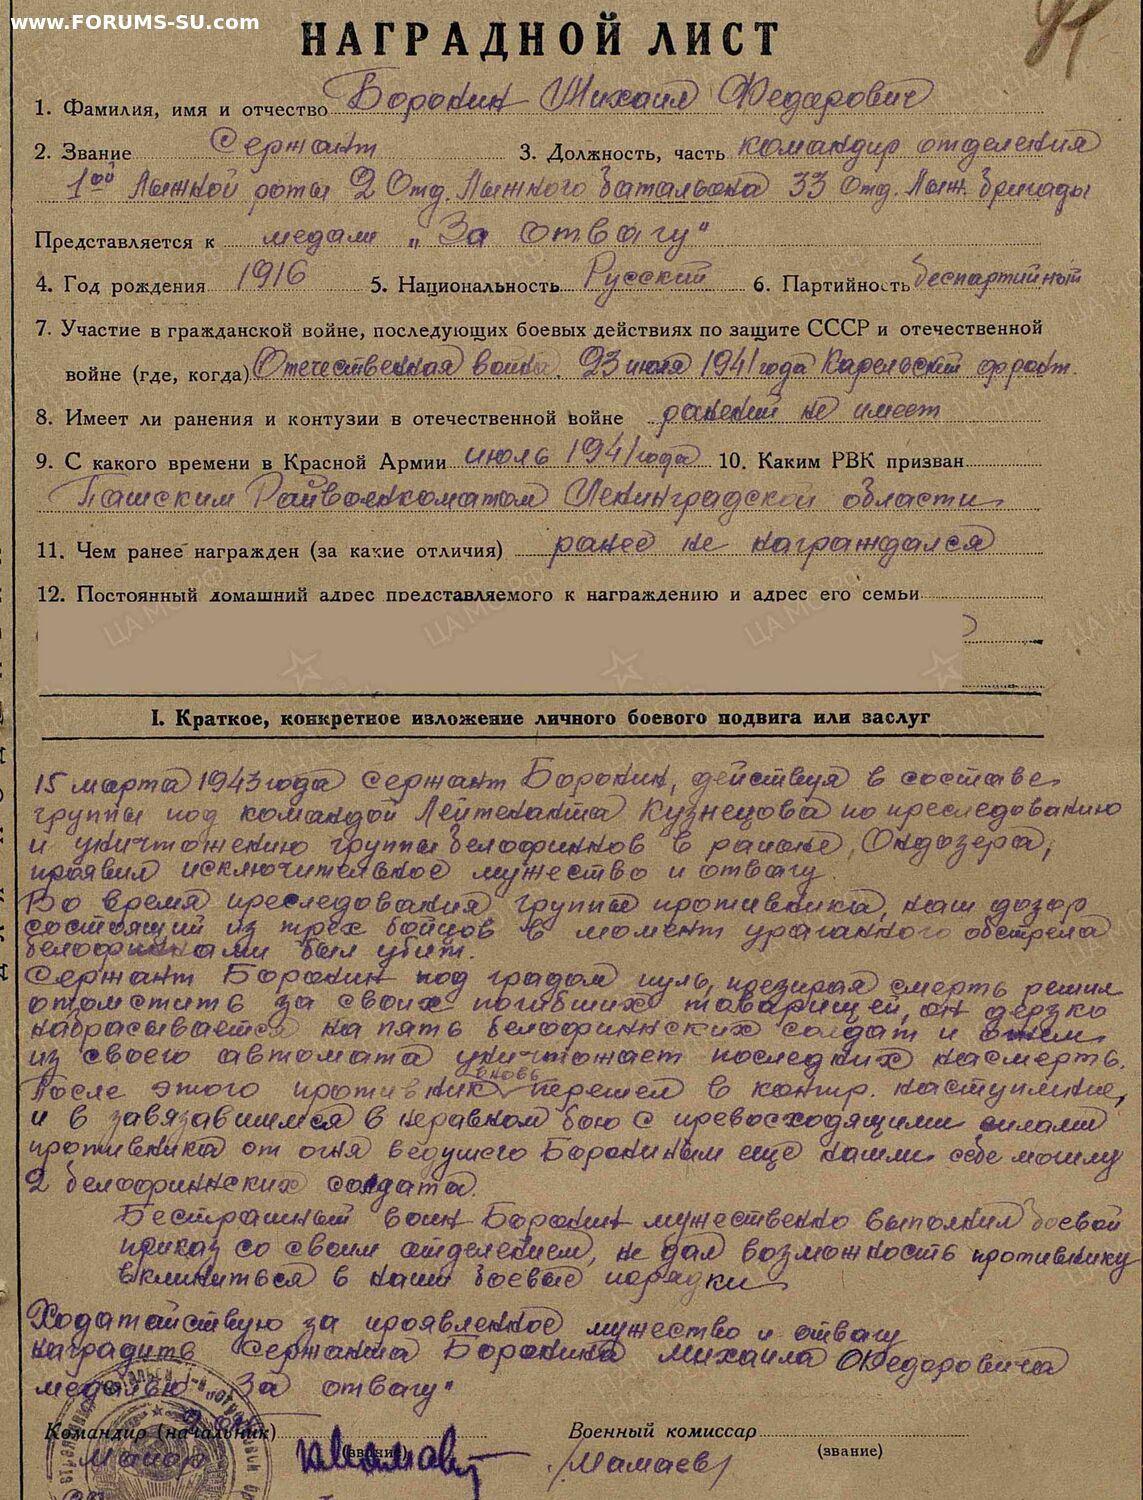 www.FORUMS-SU.com
НАГРАДНОЙ ЛИСТ
1. Фамилия, имя и отчество Воронин Михаил Федорович
2. Звание Сержант 3. Должность, часть командир отделения
1ой Лыжной роты 2 Отд. Лыжного батальона 33 Отд. Лыж. бригады
Представляется к медали „За отвагу"
4. Год рождения 1916 5. Национальность Русский 6. Партийность беспартийный
7. Участие в гражданской войне, последующих боевых действиях по защите СССР и отечественной
войне (где, когда) Отечественная война. 23 июля 1941 года Карельский фронт.
8. Имеет ли ранения и контузии в отечественной войне ранений не имеет
9. С какого времени в Красной Армии июль 1941 года 10. Каким РВК призван
Пашским Райвоенкоматом Ленинградской области
11. Чем ранее награжден (за какие отличия) ранее не награждался
12. Постоянный домашний адрес представляемого к награждению и адрес его семьи
I. Краткое, конкретное изложение личного боевого подвига или заслуг
15 марта 1943 года сержант Воронин, действуя в составе
группы под командой Лейтенанта Кузнецова по преследованию
и уничтожению группы белофиннов в районе Ондозера,
проявил исключительное мужество и отвагу.
Во время преследования группы противника, наш дозор
состоящий из трех бойцов в момент ураганного обстрела
белофиннами был убит.
Сержант Воронин под градом пуль, презирая смерть решил
отомстить за своих погибших товарищей, он дерзко
набрасывается на пять белофиннских солдат и огнем
из своего автомата уничтожает последних насмерть.
После этого противник вновь перешел в контр. наступление,
и в завязавшимся в неравном бою с превосходящими силами
противника от огня ведущего Ворониным еще нашли себе могилу
2 белофиннских солдата.
Бесстрашный воин Воронин мужественно выполнил боевой
приказ со своим отделением, не дал возможность противнику
вклиниться в наши боевые порядки.
Ходатайствую за проявленное мужество и отвагу
наградить Сержанта Воронина Михаила Федоровича
медалью „За отвагу"
Командир (начальник) Военный комиссар
Майор (звание) /Мамаев/ (звание)